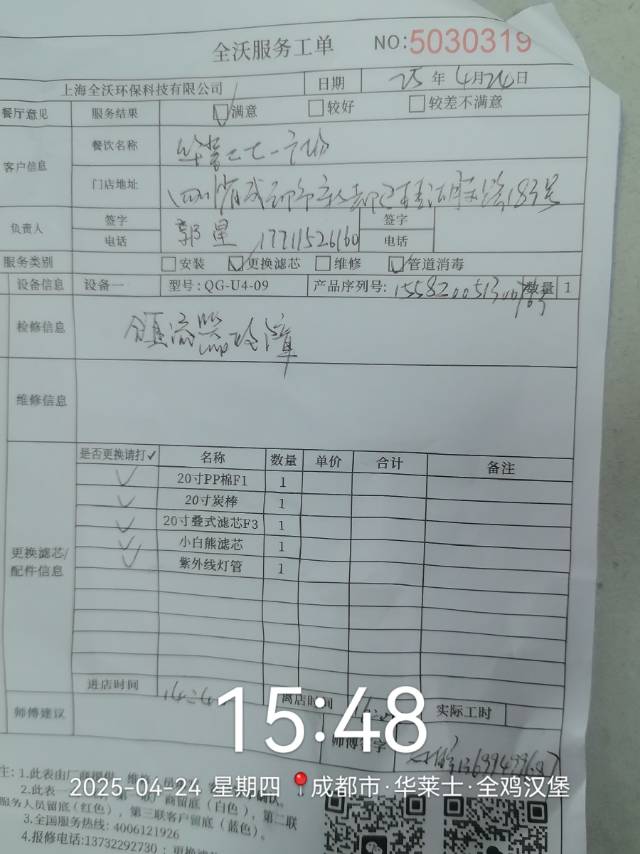 全沃服务工单 NO:5030319
上海全沃环保科技有限公司 日期 25年4月24日
餐厅意见 服务结果 满意 较好 较差不满意
客户信息 餐饮名称
门店地址 四川省成都市新都区 183号
负责人 签字 郭星 签字
电话 17711526160 电话
服务类别 安装 更换滤芯 维修 管道消毒
设备信息 设备一 型号: QG-U4-09 产品序列号: 数量 1
检修信息
维修信息
更换滤芯/配件信息 是否更换请打✓ 名称 数量 单价 合计 备注
✓ 20寸PP棉F1 1
✓ 20寸炭棒 1
✓ 20寸叠式滤芯F3 1
✓ 小白熊滤芯 1
✓ 紫外线灯管 1
进店时间 离店时间 实际工时
师傅建议 师傅签字
15:48
2025-04-24 星期四 成都市·华莱士·全鸡汉堡
注: 1.此表由
2.此表一 商留底(白色)、第二联
服务人员留底(红色), 第三联客户留底(蓝色)。
3.全国服务热线: 4006121926
4.报修电话:13732292730